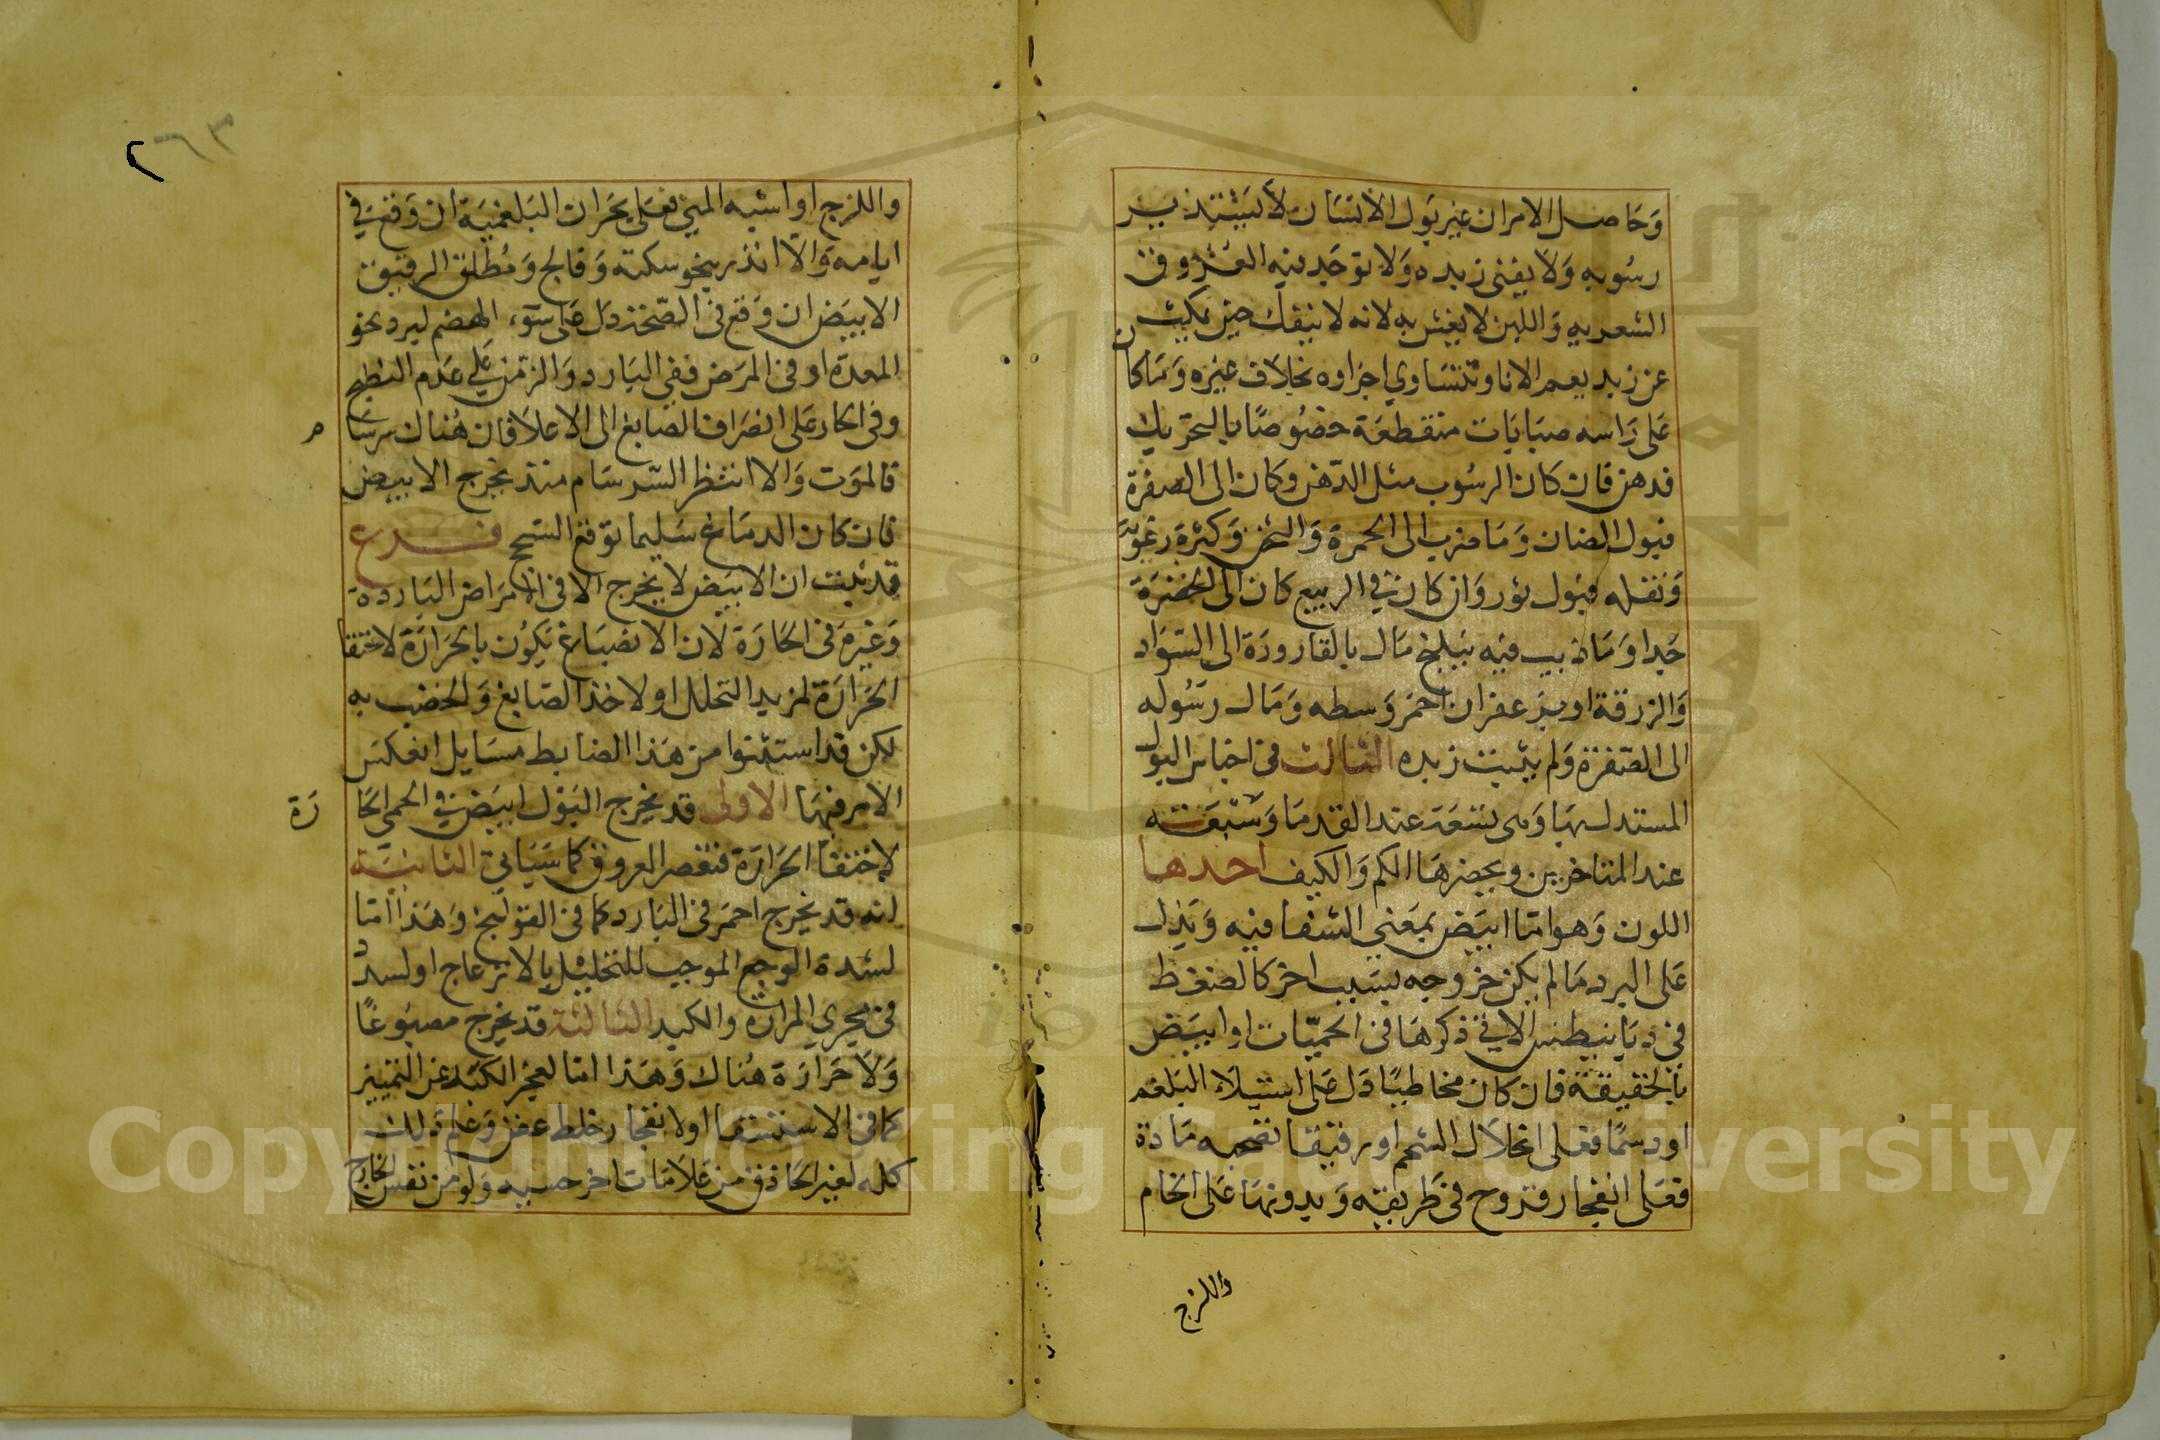 وحاصل الامر ان غير بول الانسان لا يستدير
رسوبه ولا يفنى زبده ولا توجد فيه العروق
الشعريه واللبن لا يغش به لانه لا ينفك حين يكيثر
عن زبد يعم الانا وتتساوي اجزاوه بخلاف غيره وما كان
على راسه صبابات متقطعة خصوصا بالتحريك
فدهن فان كان الرسوب مثل الدهن وكان الى الصفرة
فبول الضان وما ضرب الى الحمرة والثخن وكثرة رغوته
وثقله فبول ثور وان كان في الربيع كان الى الخضرة
جدا وما ذيب فيه نيلج مال بالقارورة الى السواد
والزرقة او بزعفران احمر وسطه ومال رسوبه
الى الصفرة ولم يثبت زبده الثالث في اجناس البول
المستدل بها وهى تسعة عند القدما وسبعة
عند المتاخرين ويحصرها الكم والكيف احدها
اللون وهو اما ابيض بمعني الشفافيه ويدل
على البرد ما لم يكن خروجه بسبب اخر كالضغط
في ديانيطس الاتي ذكرها في الحميات او ابيض
بالحقيقة فان كان مخاطيا دل على استيلاء البلغم
او دسما فعلى انحلال الشحم او رقيقا تصحبه مادة
فعلى انفجار قروح في طريقه وبدونها على الخام
واللزج
٢٦٣
واللزج او اشبه المني فعلى بحران البلغمية ان وقع في
ايامه والا انذر بنحو سكته وفالج ومطلق الرقيق
الابيض ان وقع في الصحة دل على سوء الهضم لبرد نحو
المعدة او في المرض ففي البارد والزمن علي عدم النضج
وفي الحار على انصراف الصابغ الى الاعلا فان هناك سرسام
فالموت والا انتظر السرسام منذ يخرج الابيض
فان كان الدماغ سليما توقع السحج فرع
قد ثبت ان الابيض لا يخرج الا في الامراض الباردة
وغيره في الحارة لان الانصباغ يكون بالحرارة لاختفا
الحرارة لمزيد التحلل او لاخذ الصابغ والخضب به
لكن قد استثنوا من هذا الضابط مسايل انعكس
الامر فيها الاولى قد يخرج البول ابيض في الحمى الحارة
لاختفا الحرارة فتقصر العروق كما سياتي الثانية
انه قد يخرج احمر في البارد كما في القولنج وهذا اما
لشدة الوجع الموجب للتحليل بالانزعاج او لسدد
في مجري المرارة والكبد الثالثة قد يخرج مصبوغا
ولا حرارة هناك وهذا اما لعجز الكبد عن التمييز
كما في الاستسقا او لانفجار خلط عفن وعلم ذلك
كله لغير الحاذق من علامات اخر حسيه ولو من نفس الخارج